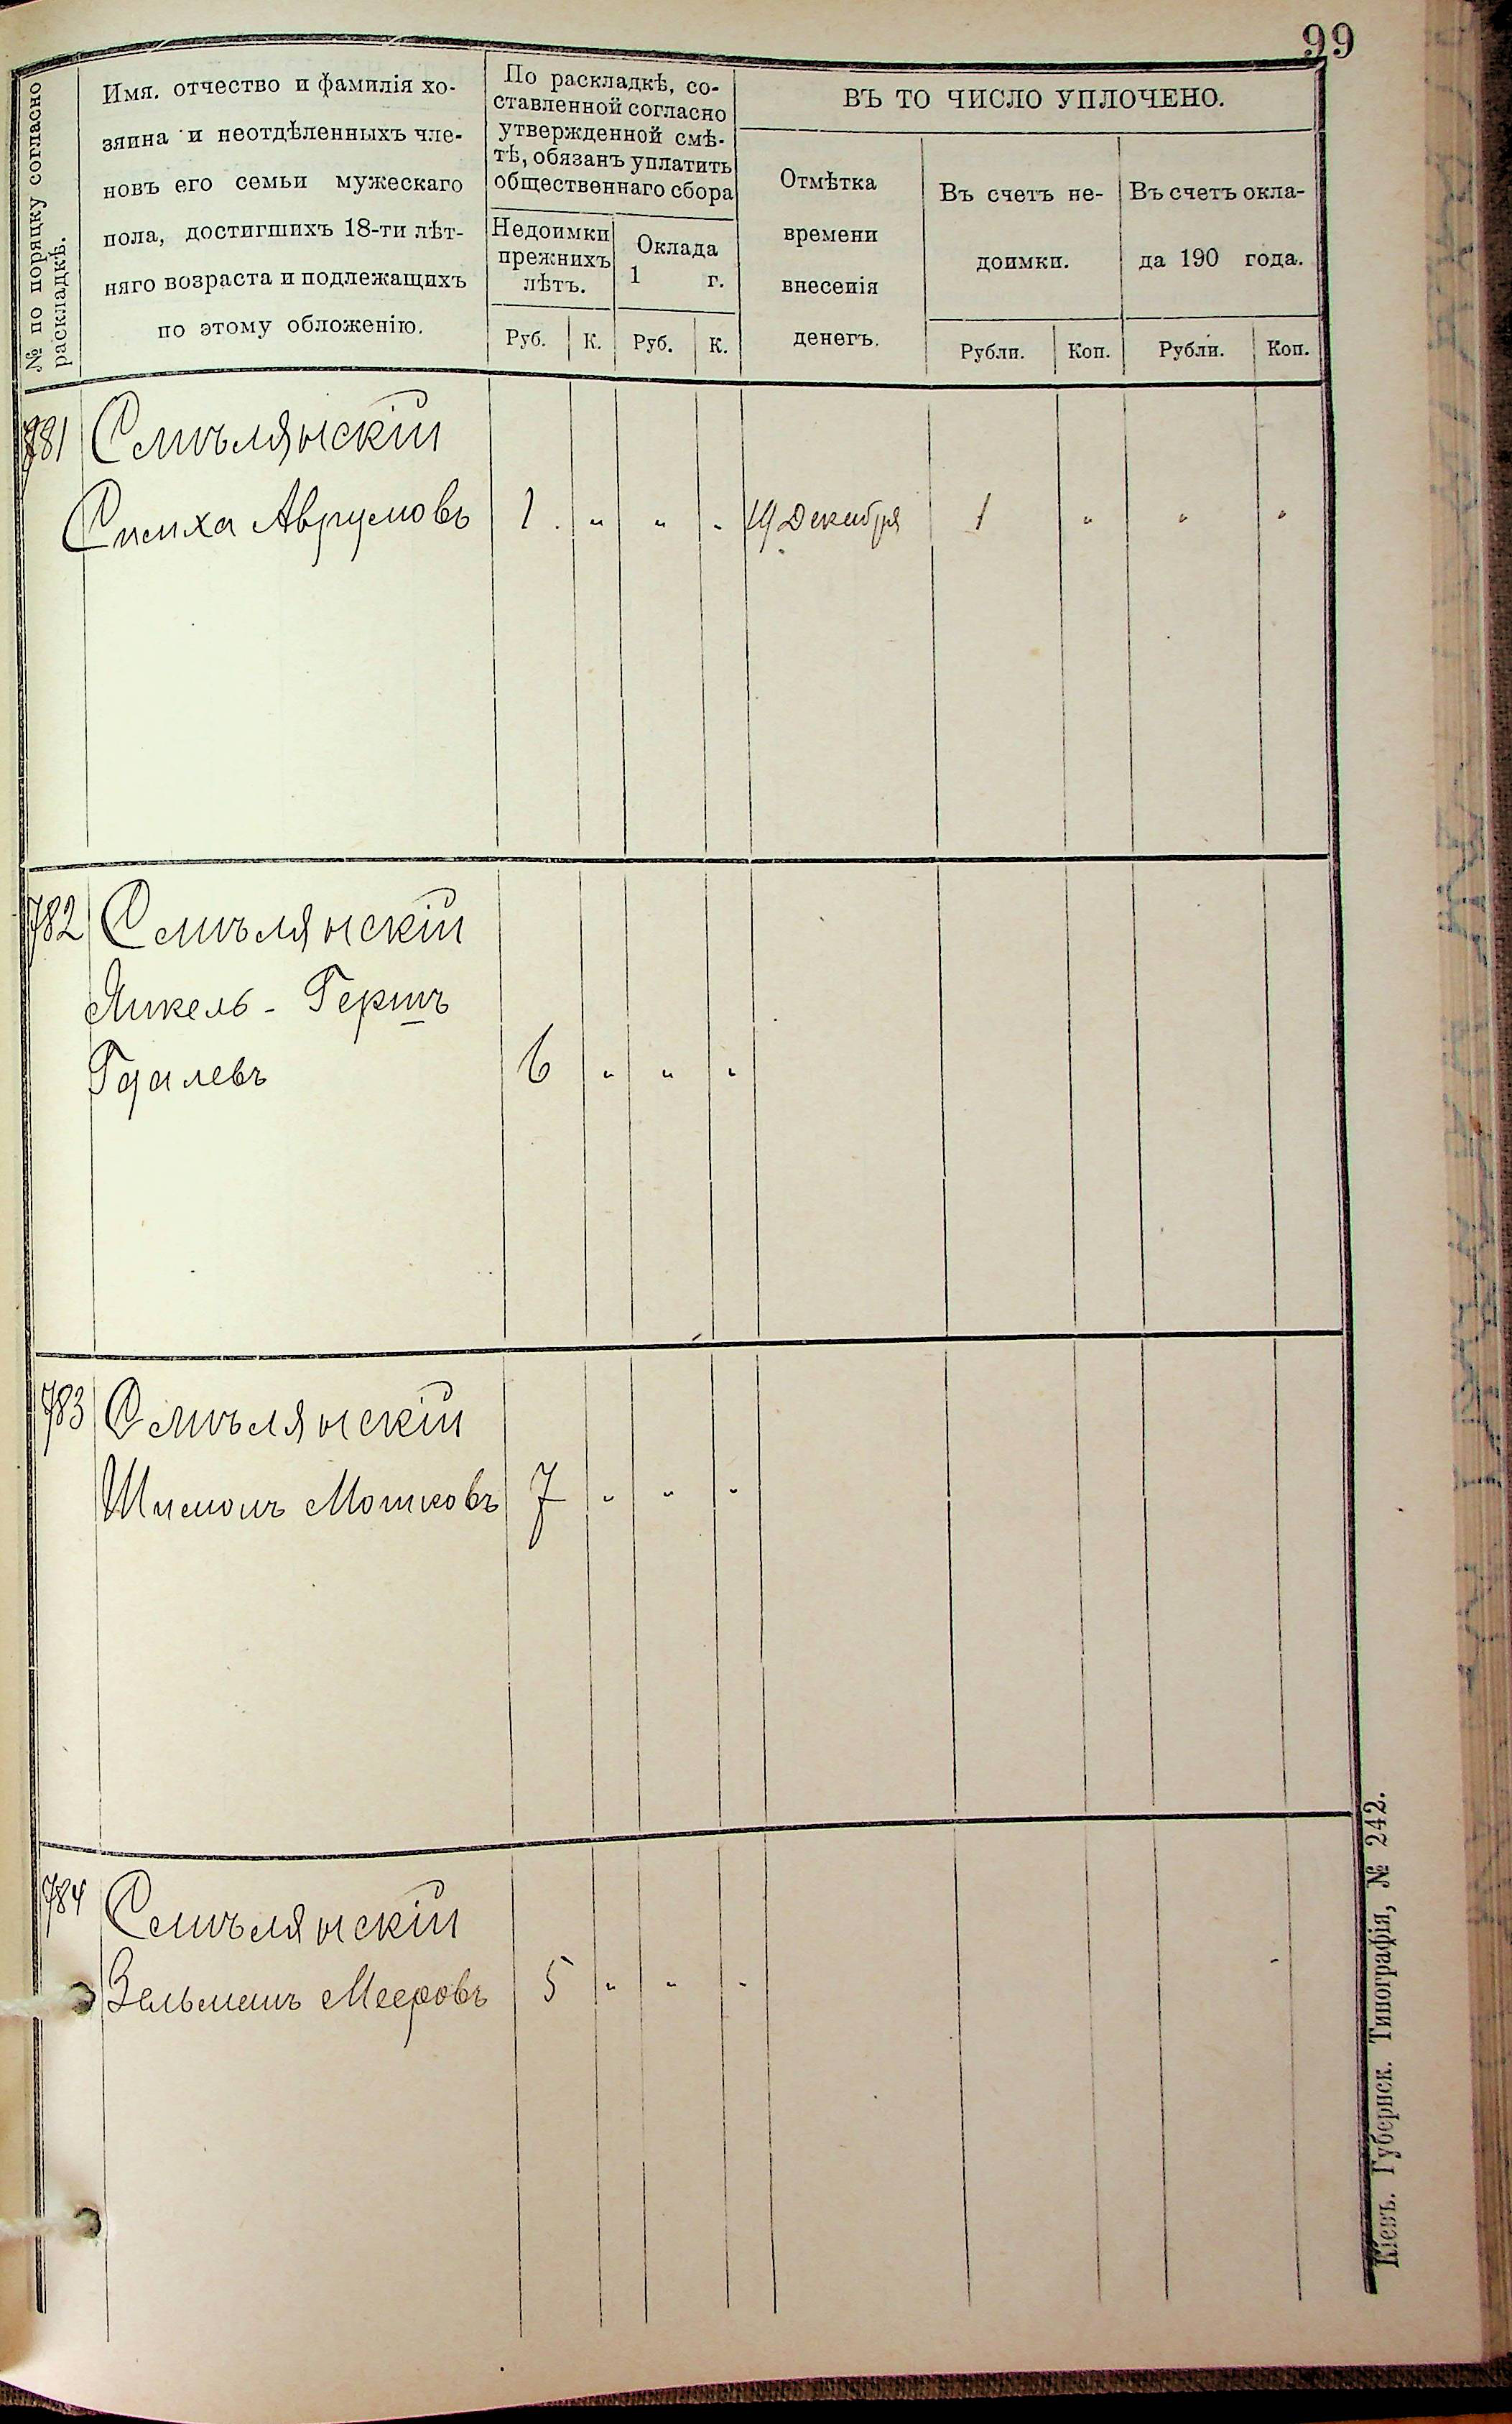 99
№ по поряцку согласно
раскладкѣ.
Имя, отчество и фамилія хо-
зяина и неотдѣленныхъ чле-
новъ его семьи мужескаго
пола, достигшихъ 18-ти лѣт-
няго возраста и подлежащихъ
по этому обложенію.
По раскладкѣ, со-
ставленной согласно
утвержденной смѣ-
тѣ, обязанъ уплатить
общественнаго сбора
Недоимки
прежнихъ
лѣтъ.
Оклада
1 г.
Руб. К. Руб. К.
ВЪ ТО ЧИСЛО УПЛОЧЕНО.
Отмѣтка
времени
внесенія
денегъ.
Въ счетъ не-
доимки.
Въ счетъ окла-
да 190 года.
Рубли. Коп. Рубли. Коп.
781 Смѣлянскій
Симха Аврумовъ 1 " " " 19 Декабря 1 " " "
782 Смѣлянскій
Янкель - Гершъ
Гдалевъ 6 " " "
783 Смѣлянскій
Шимонъ Мошковъ 7 " " "
784 Смѣлянскій
Зельманъ Мееровъ 5 " " "
Кіевъ. Губернск. Типографія, № 242.